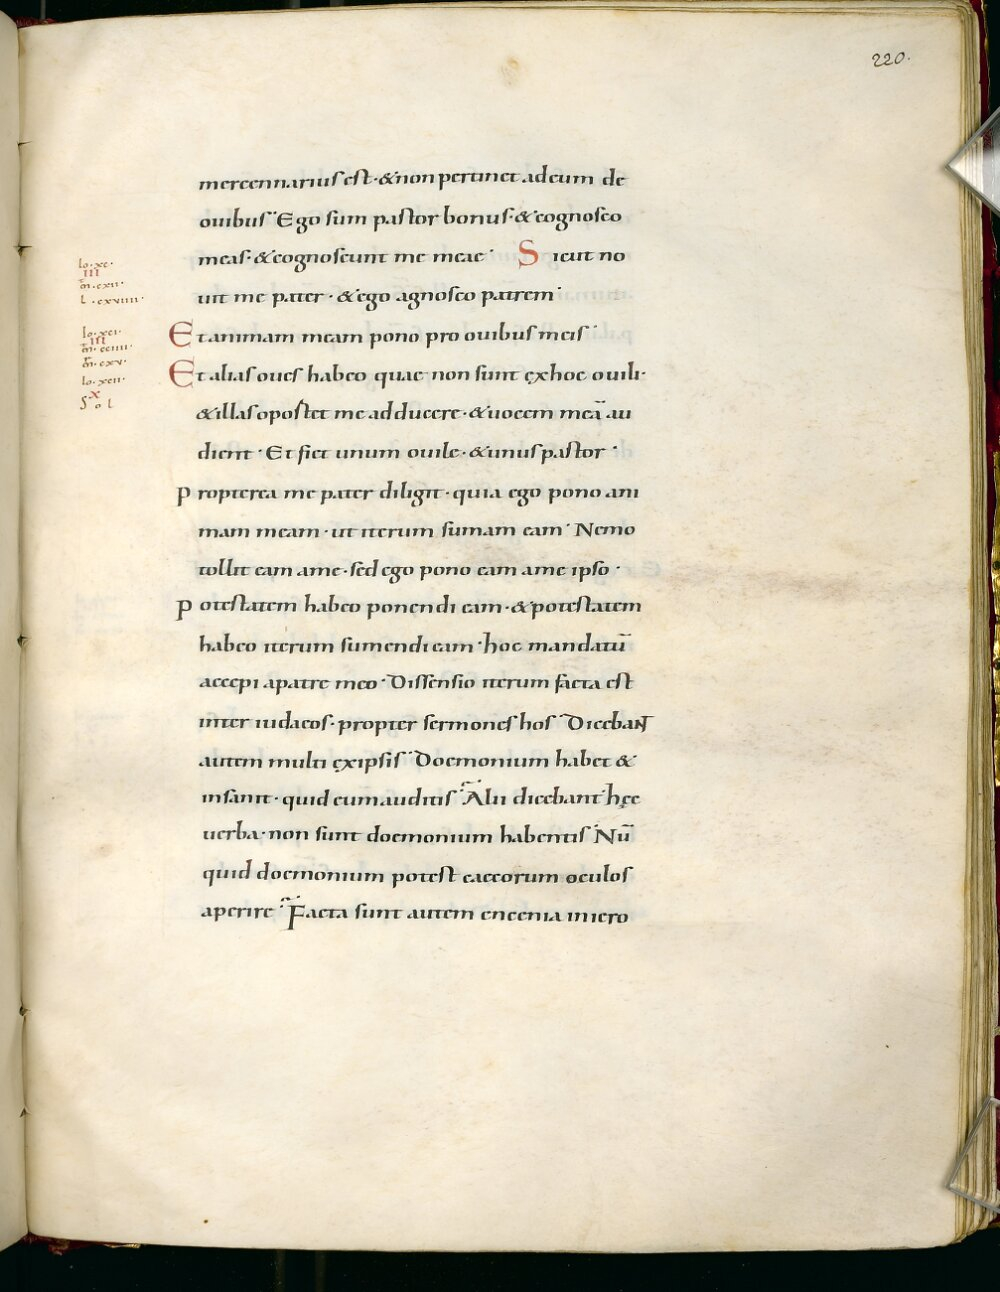 220.
mercennarius est· & non pertinet ad eum de
ouibus· Ego sum pastor bonus· & cognosco
meas· & cognoscunt me meae· Sicut no
uit me pater· & ego agnosco patrem·
Et animam meam pono pro ouibus meis·
Et alias oues habeo quae non sunt ęx hoc ouili·
& illas oportet me adducere· & uocem meā au
dient· Et fiet unum ouile· & unus pastor·
Propterea me pater diligit· quia ego pono ani
mam meam· ut iterum sumam eam· Nemo
tollit eam a me· sed ego pono eam a me ipso·
Potestatem habeo ponendi eam· & potestatem
habeo iterum sumendi eam· hoc mandatū
accepi a patre meo· Dissensio iterum facta est
inter iudaeos· propter sermones hos· Dicebant
autem multi ęx ipsis· Doemonium habet &
insanit· quid eum auditis· Alii dicebant hęc
uerba· non sunt doemonium habentis· Nū
quid doemonium potest caecorum oculos
aperire· Facta sunt autem encenia in iero
Io·xc·
III
m̄·cxii·
L·cxviiii·
Io·xci·
Io·xcii·
X